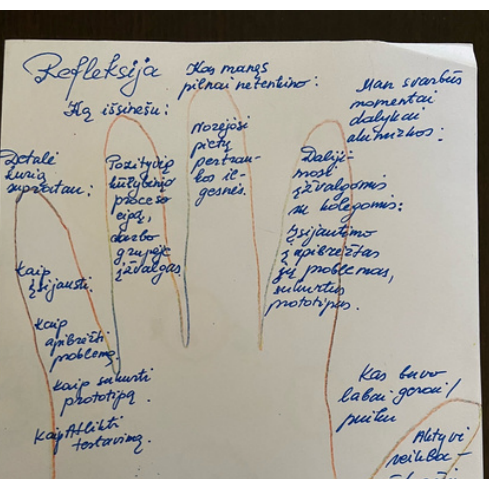 Refleksija
Ką išsinešu:
Kas manęs
pilnai netenkino:
Man svarbūs
momentai
dalykai
Detalė
kurią
supratau:
kaip
įsijausti.
kaip
apibrėžti
problemą.
kaip sukurti
prototipą.
Kaip Atlikti
testavimą.
Pozityvią
kūrybinio
proceso
eigą,
darbo
grupėje
įžvalgas.
Norėjosi
pietų
pertrau-
kos il-
gesnės.
Daliji-
mosi
įžvalgomis
su kolegomis:
Įsijautimo
į apibrėžtas
problemas,
sukurtus
prototipus.
Kas buvo
labai gerai/
puiku
Aktyvi
veikla-